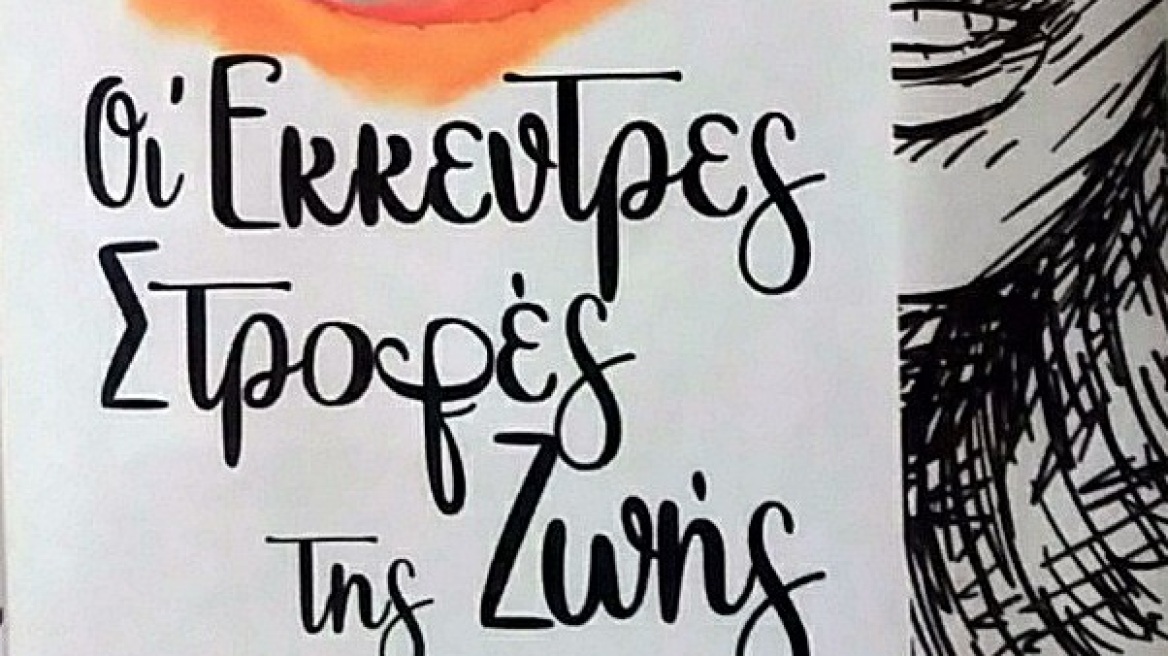 Οι Έκκεντρες
Στροφές
της Ζωής